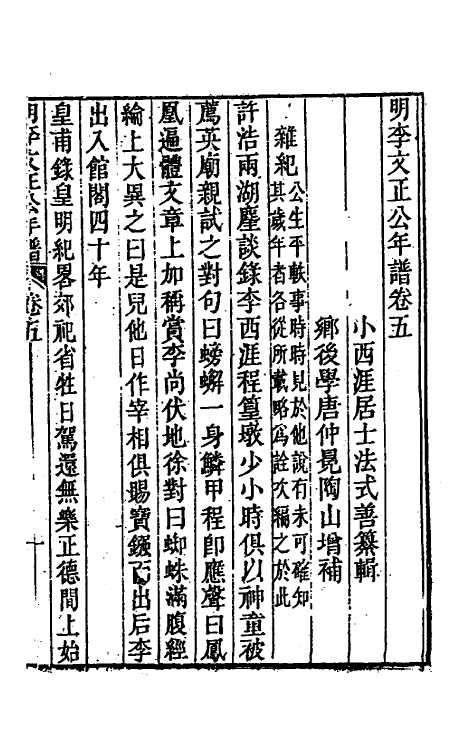 明李文正公年譜卷五
小西涯居士法式善纂輯
鄉後學唐仲冕陶山增補
雜紀公生平軼事時時見於他說有未可確知
其歲年者各從所載略為詮次編之於此
許浩兩湖麈談錄李西涯程篁墩少小時俱以神童被
薦英廟親試之對句曰螃蠏一身鱗甲程卽應聲曰鳳
凰遍體文章上加稱賞李尚伏地徐對曰蜘蛛滿腹經
綸上大異之曰是兒他日作宰相俱賜寶鏹而出后李
出入館閣四十年
皇甫錄皇明紀畧郊祀省牲日駕還無樂正德間上始
明李文正公年譜 卷五 一